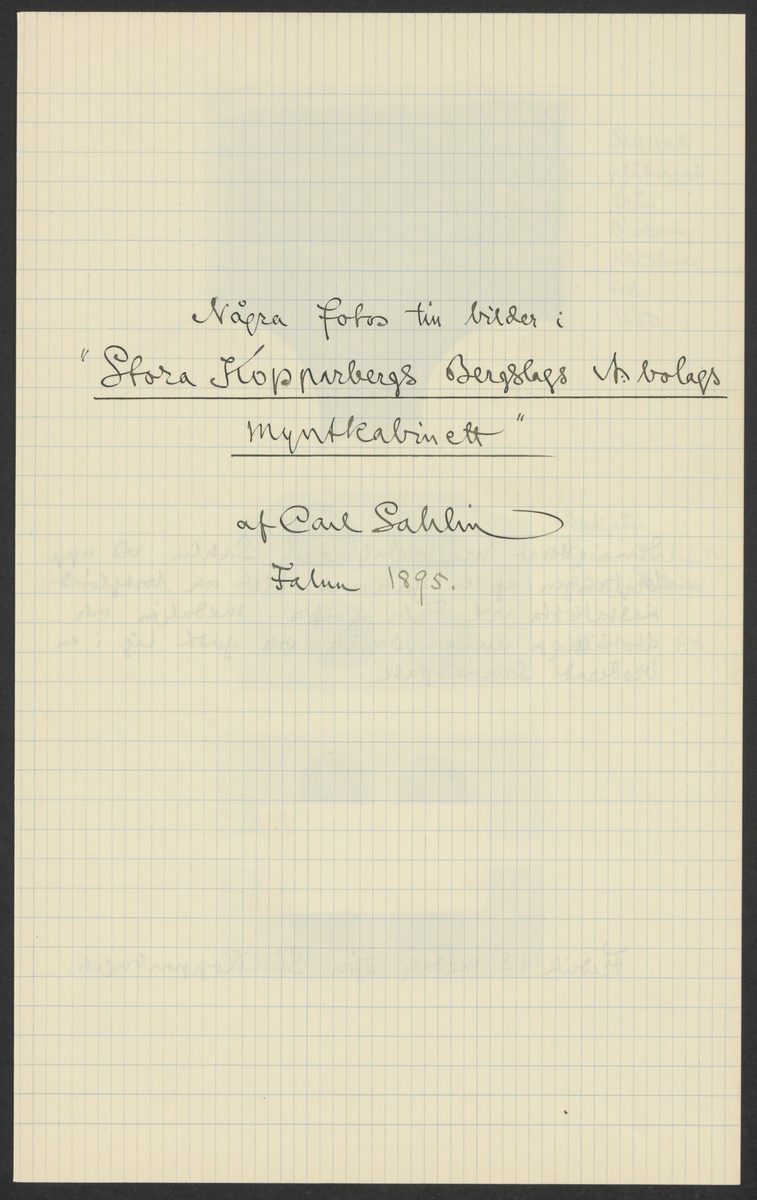 Några fotos till bilder i
"Stora Kopparbergs Bergslags A.bolags
Myntkabinett"
af Carl Sahlin
Falun 1895.